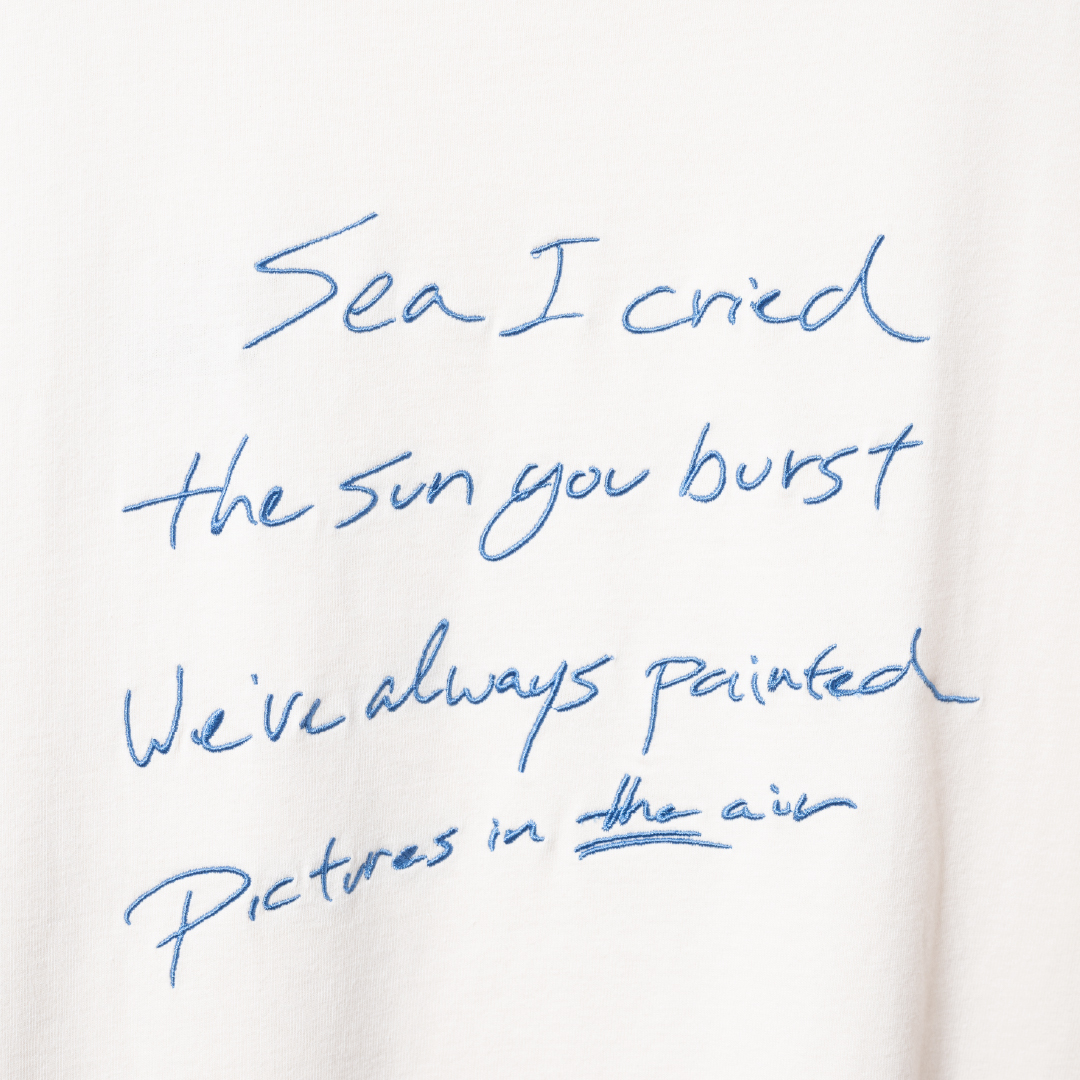 Sea I cried
the sun you burst
We've always painted
Pictures in the air